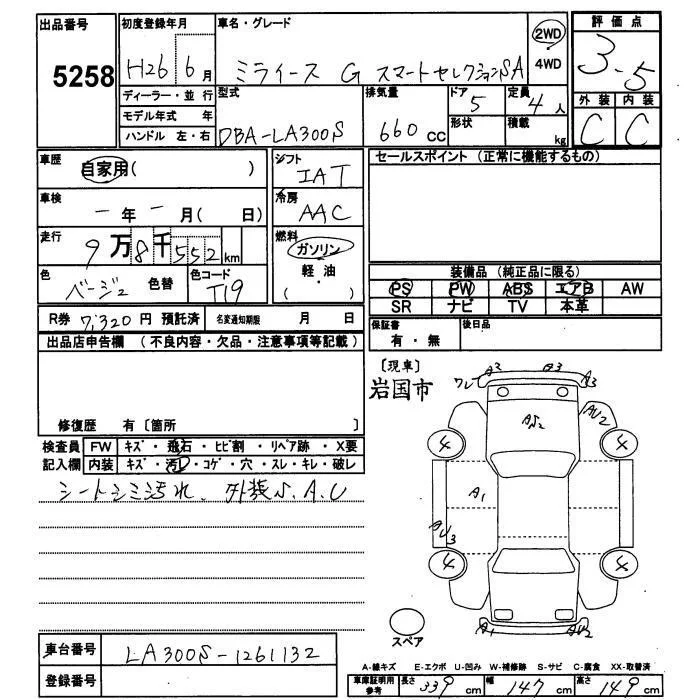 出品番号
5258
初度登録年月
H26 6月
車名・グレード
ミライース G スマートセレクションSA
2WD
4WD
評価点
3.5
外装 内装
C C
ディーラー・並行
モデル年式 年
ハンドル 左・右
型式
DBA-LA300S
排気量
660 CC
ドア
5
形状
定員
4人
積載
kg
車歴
自家用( )
シフト
IAT
車検
ー年ー月( 日)
冷房
AAC
走行
9万8千552km
燃料
ガソリン
軽・油
( )
色
ベージュ
色替
色コード
T19
R券 7,320円 預託済
名変通知期限 月 日
セールスポイント (正常に機能するもの)
装備品 (純正品に限る)
PS PW ABS エアB AW
SR ナビ TV 本革
保証書
有・無
後日品
出品店申告欄 (不良内容・欠品・注意事項等記載)
修復歴 有〔箇所 〕
検査員
記入欄
FW キズ・飛石・ヒビ割・リペア跡・X要
内装 キズ・汚レ・コゲ・穴・スレ・キレ・破レ
シートシミ汚れ、外装S.A.U
〔現車〕
岩国市
ワレ A2 A3
AS2
AU2
4 4
A1
AU3
4 4
A1 AU2
スペア
車台番号
LA300S-1261132
登録番号
A-線キズ E-エクボ U-凹み W-補修跡 S-サビ C-腐食 XX-取替済
車庫証明用
参考
長さ 339 cm 幅 147 cm 高さ 149 cm